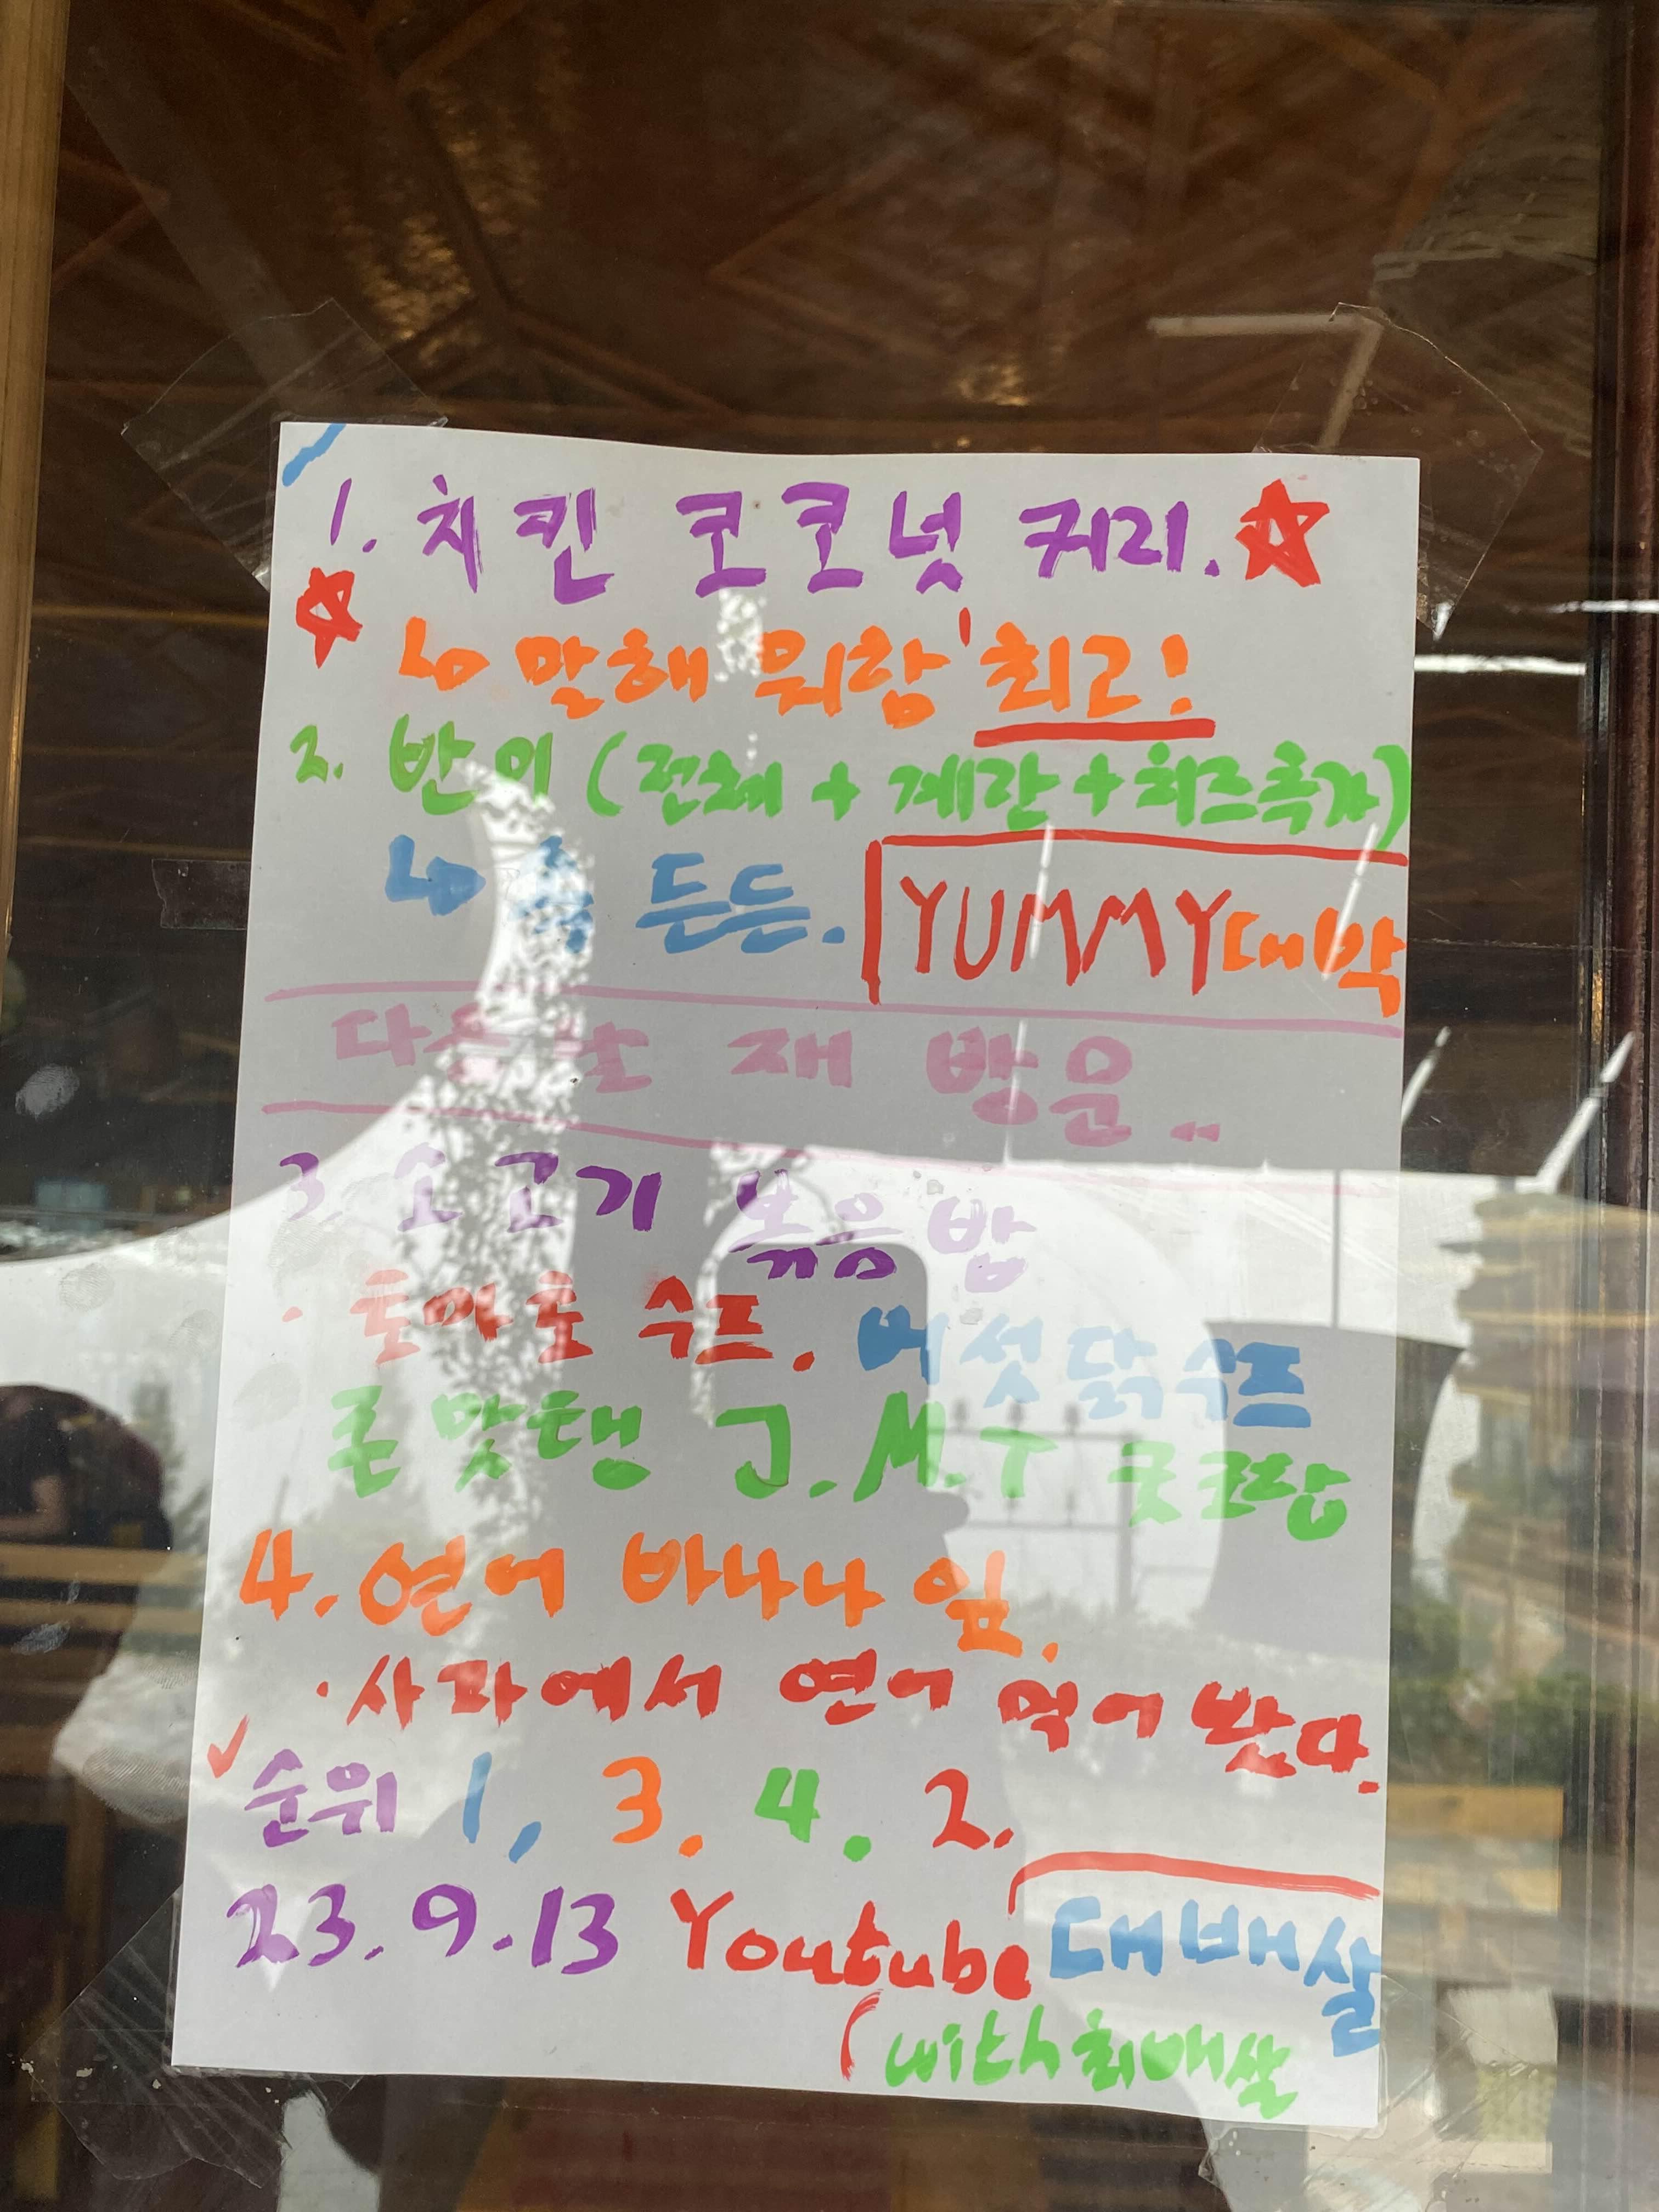 1. 치킨 코코넛 커리.
↳ 말해 뭐함 '최고!
2. 반미 (전체 + 계란 + 치즈추가)
↳ 든든. YUMMY 대박
다음날 재 방문..
3. 소고기 볶음밥
· 토마토 수프. 버섯닭수프
존맛탱 J.M.T 굿크랍
4. 연어 바나나 잎.
· 사파에서 연어 먹어 봤다.
✓ 순위 1, 3. 4. 2.
23.9.13 Youtube 대배살
(with 최배살